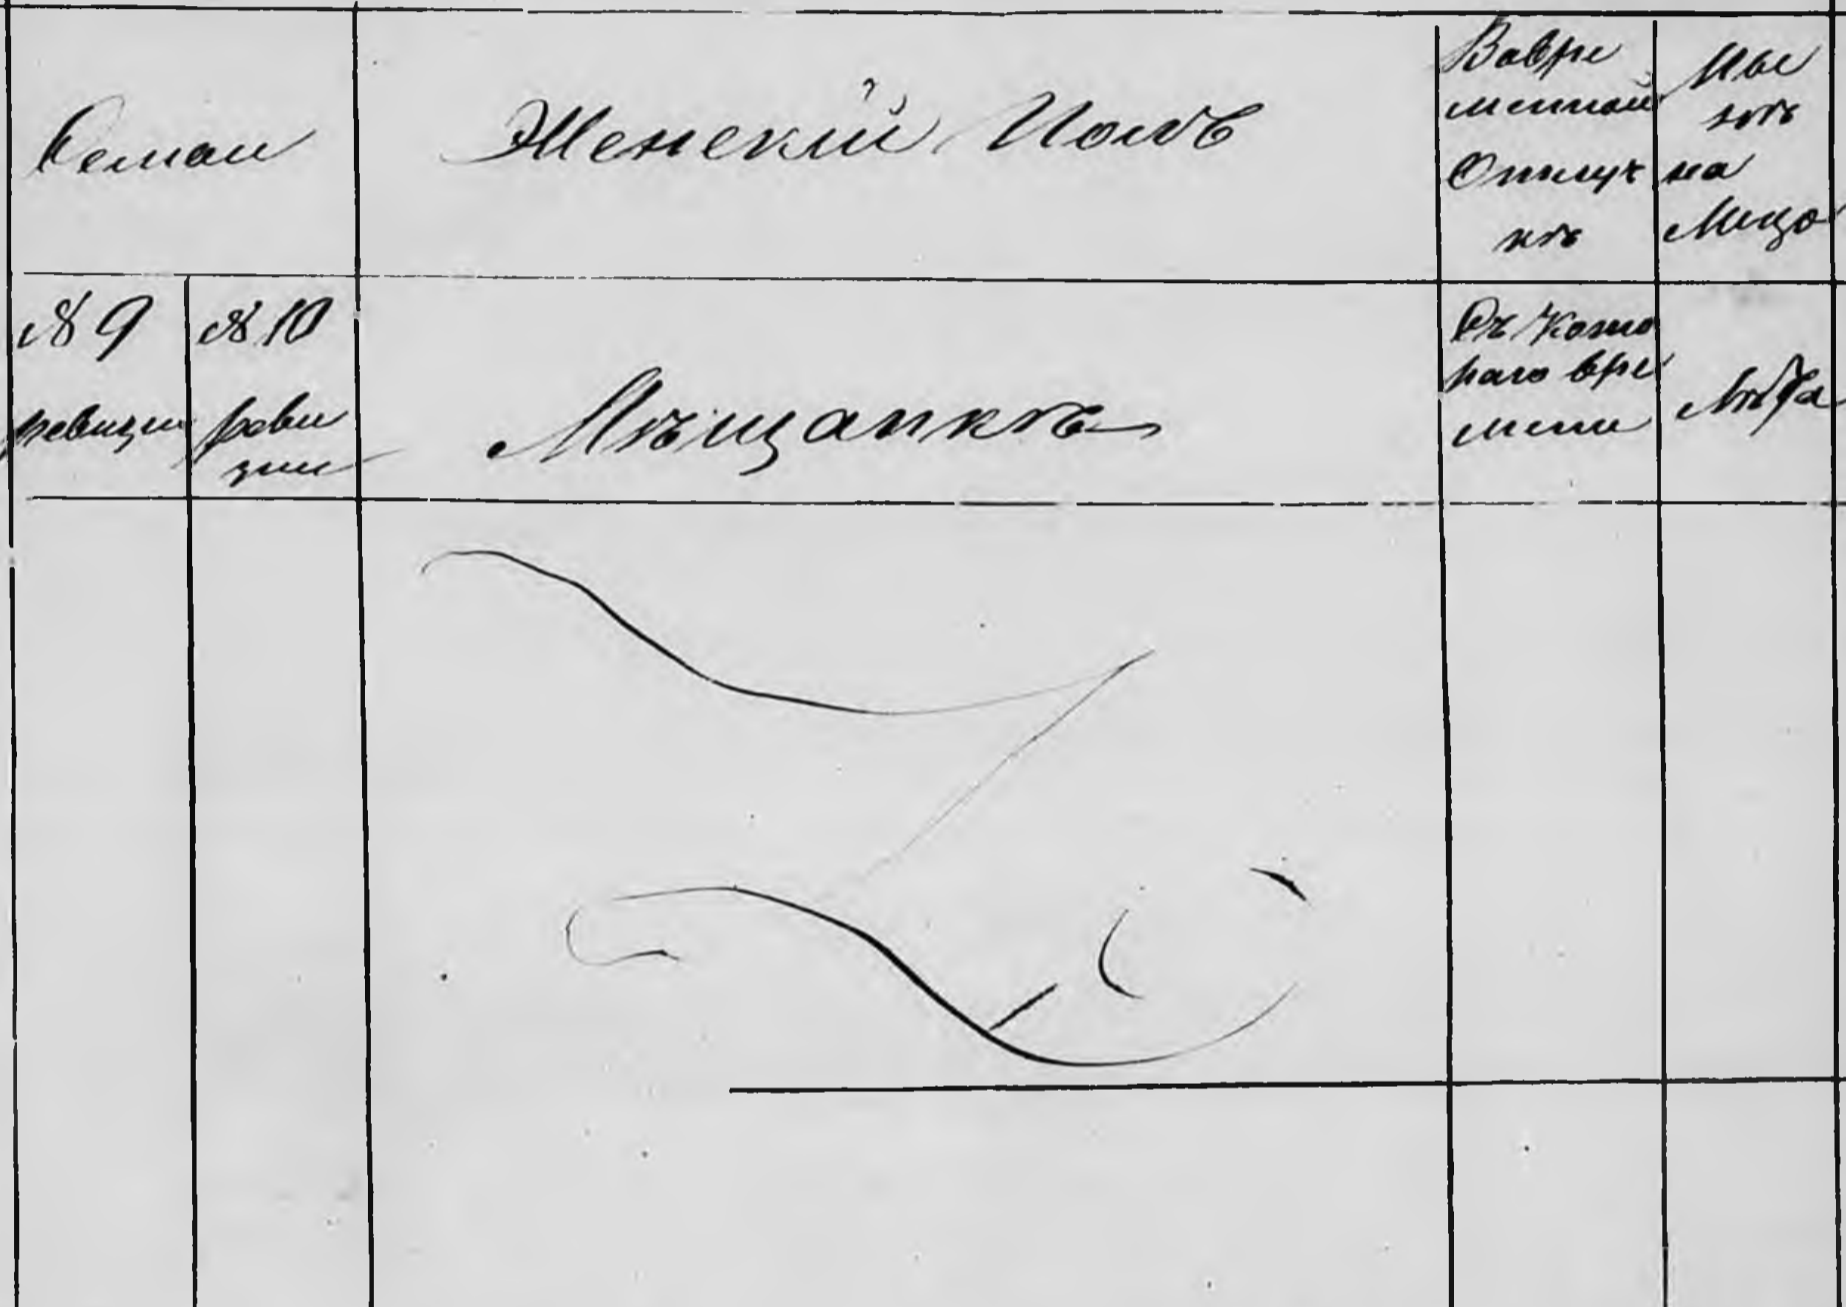 Семьи
Женскій Полъ
Вовре
менной
Отлуч
кѣ
Ны
нѣ
на
Лицо
№ 9
ревизии
№ 10
реви
зии
Мѣщанкѣ
Съ Кото
раго вре
мени
Лѣта